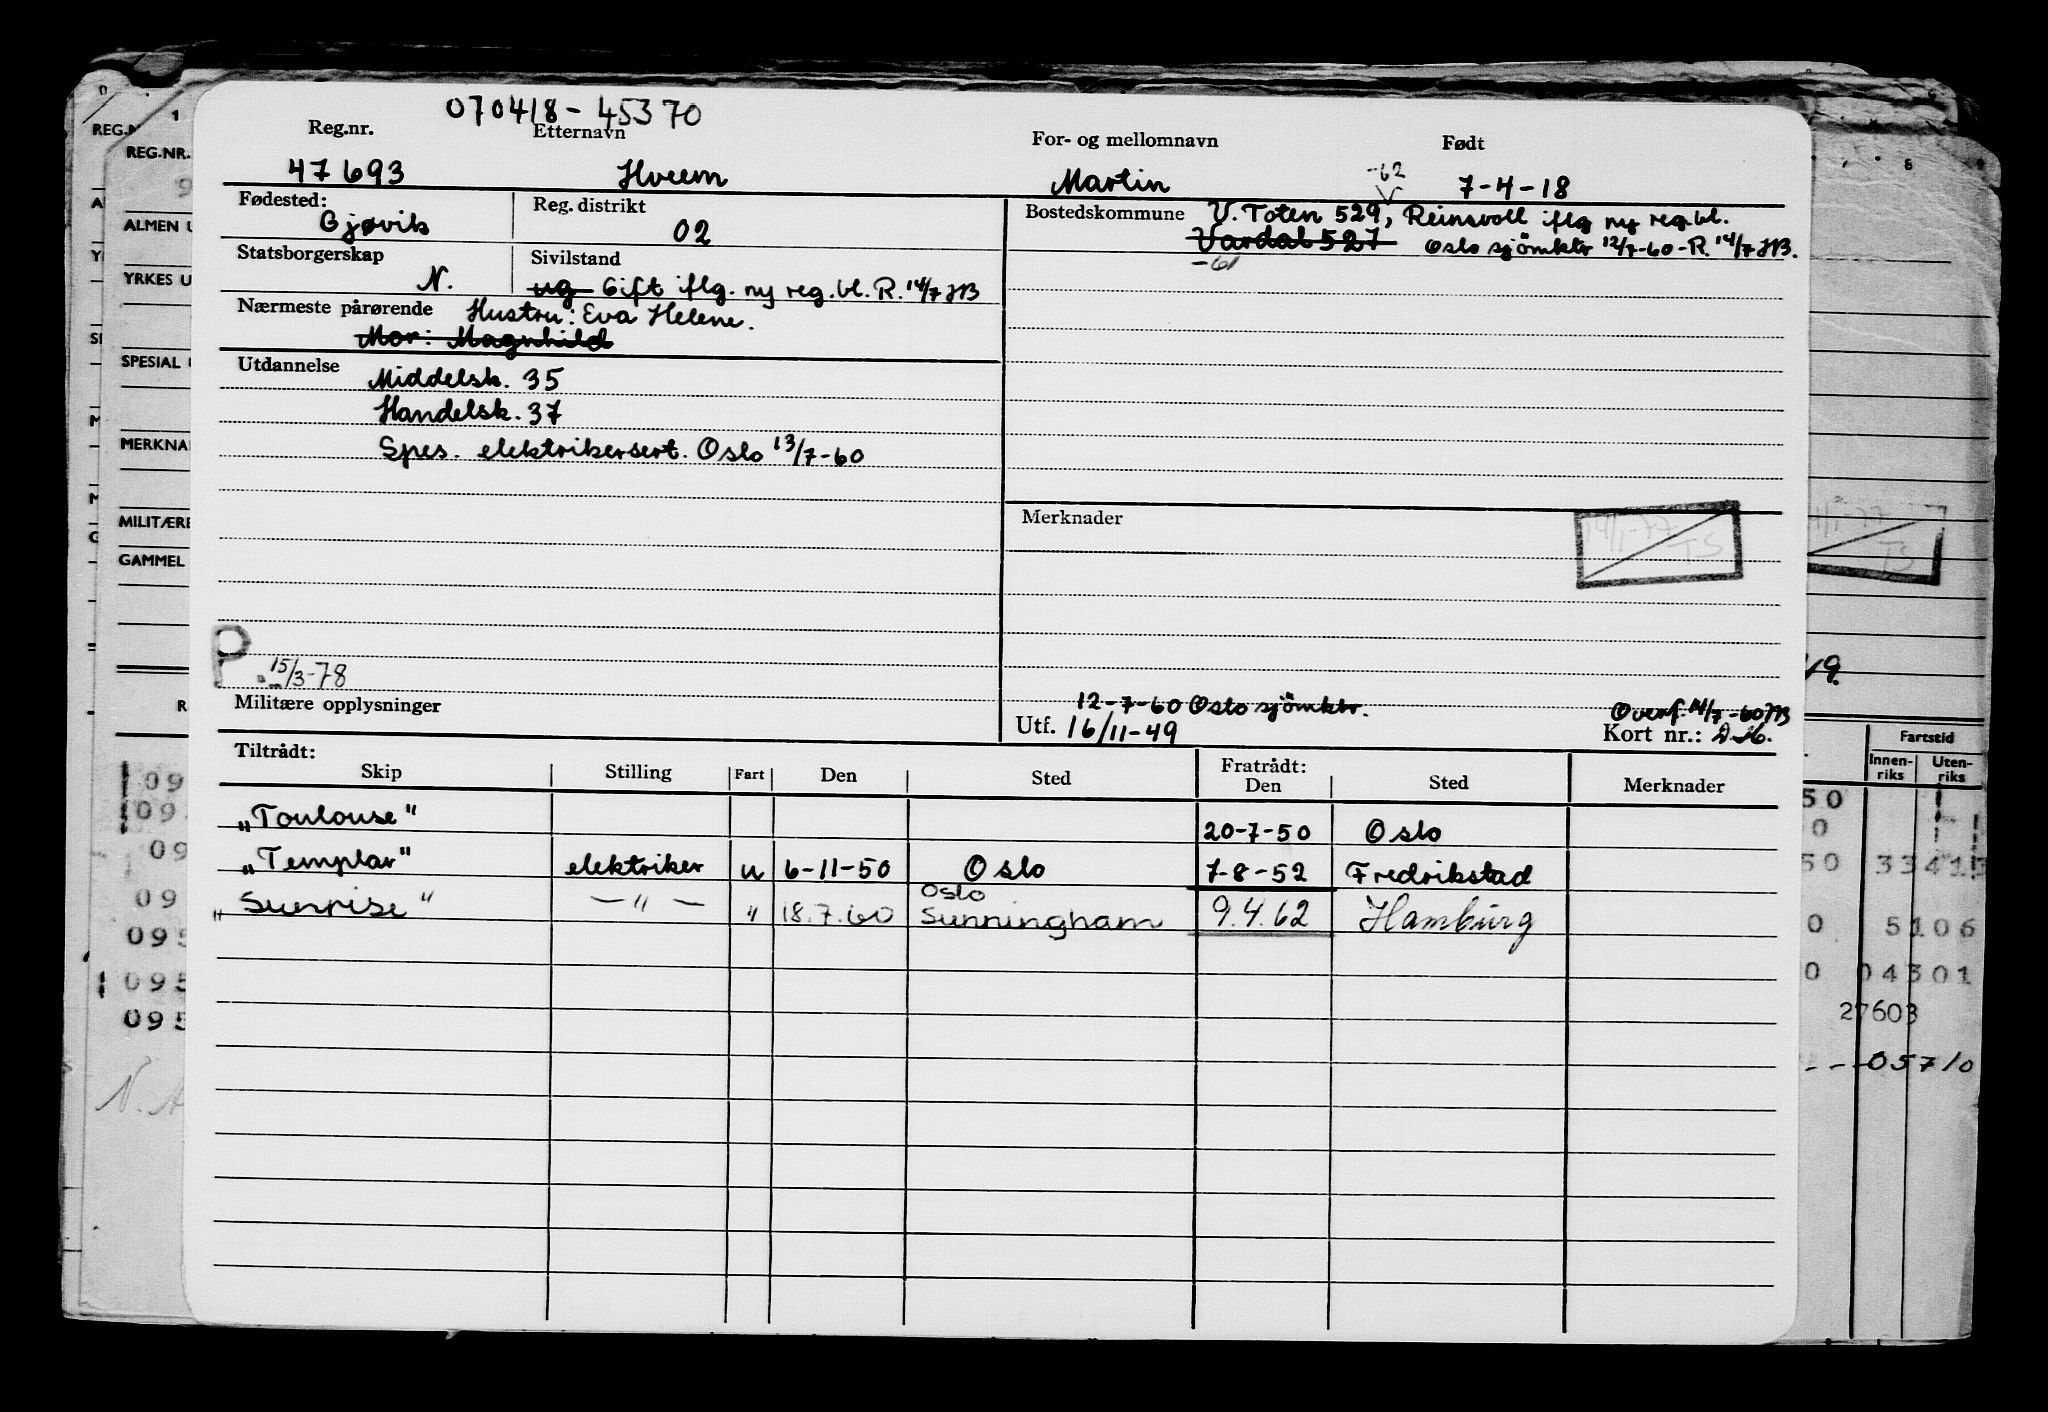 070418-45370
Reg.nr. Etternavn For- og mellomnavn Født
47693 Hveem Martin 7-4-18
-62
Fødested: Gjøvik Reg. distrikt 02 Bostedskommune V. Toten 529, Reinsvoll iflg ny reg.bl.
Vardal 527 Oslo sjömktr 12/7-60-R. 14/7 HB.
-61
Statsborgerskap N. Sivilstand
ug Gift iflg. ny reg.bl. R. 14/7 HB
Nærmeste pårørende Hustru: Eva Helene.
Mor: Magnhild
Utdannelse Middelsk. 35
Handelsk. 37
Spes. elektrikersert. Oslo 13/7-60
Merknader 14/1-77
TS
P. 15/3-78
Militære opplysninger
12-7-60 Oslo sjömktr. Overf. 14/7-60 HB
Utf. 16/11-49 Kort nr.:
Tiltrådt: Fratrådt:
Skip Stilling Fart Den Sted Den Sted Merknader
"Toulouse" 20-7-50 Oslo
"Templar" elektriker u 6-11-50 Oslo 7-8-52 Fredrikstad
Oslo
"Sunrise" — " — " 18.7.60 Sunningham 9.4.62 Hamburg
REG.NR.
ALMEN U
YRKES U
SPESIAL
MERKNA
MILITÆRE
GAMMEL
Fartstid
Innen-riks Uten-riks
50
50 33413
0 5106
0 04301
27603
- - - 05710